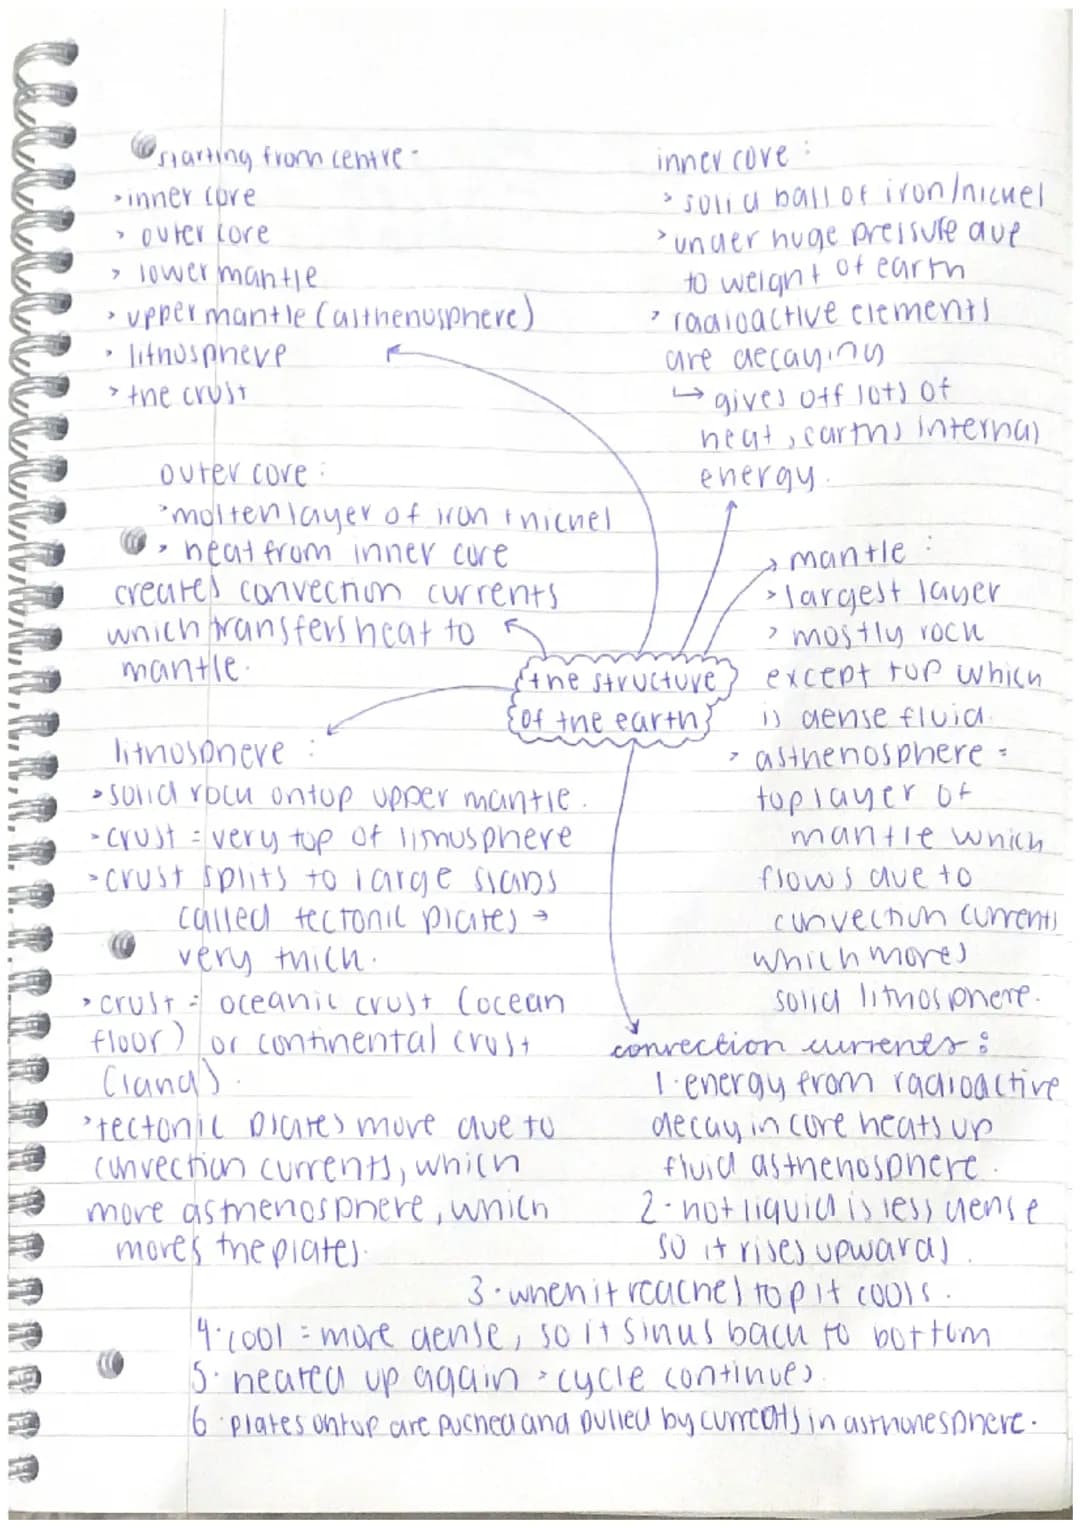 starting from centre -
> inner core
> outer core
> lower mantle
> upper mantle (asthenosphere)
> lithosphere
> the crust
inner core :
> solid ball of iron/nickel
> under huge pressure due
to weight of earth
> radioactive elements
are decaying
↳ gives off lots of
heat, earths internal
energy.
outer core :
> molten layer of iron + nickel
> heat from inner core
creates convection currents
which transfers heat to
mantle.
the structure
of the earth
> mantle :
> largest layer
> mostly rock
except top which
is dense fluid.
> asthenosphere =
top layer of
mantle which
flows due to
convection currents
which moves
solid lithosphere.
lithosphere :
> solid rock ontop upper mantle.
> crust = very top of lithosphere
> crust splits to large slabs
called tectonic plates →
very thick.
> crust = oceanic crust (ocean
floor) or continental crust
(land).
> tectonic plates move due to
convection currents, which
move asthenosphere, which
moves the plates.
convection currents :
1. energy from radioactive
decay in core heats up
fluid asthenosphere.
2. hot liquid is less dense
so it rises upwards.
3. when it reaches top it cools.
4. cool = more dense, so it sinks back to bottom
5. heated up again > cycle continues.
6. plates ontop are puched and pulled by currents in asthonesphere.